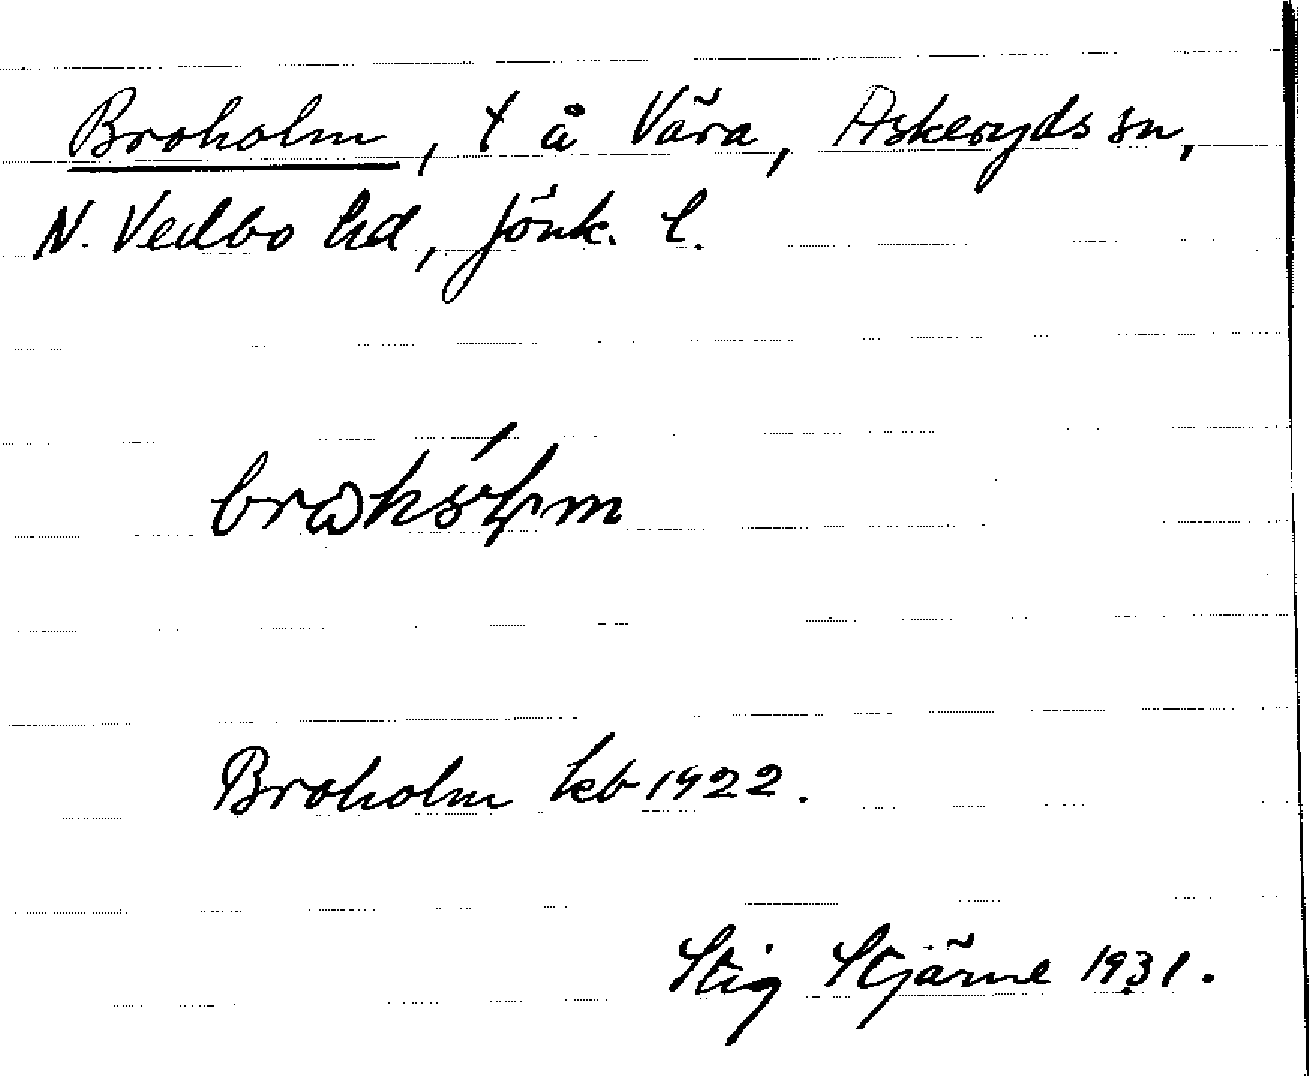 Broholm, t å Våra, Askeryds sn,
N. Vedbo hd, Jönk. l.
Broholm kb 1922.
Stig Stjärne 1931.